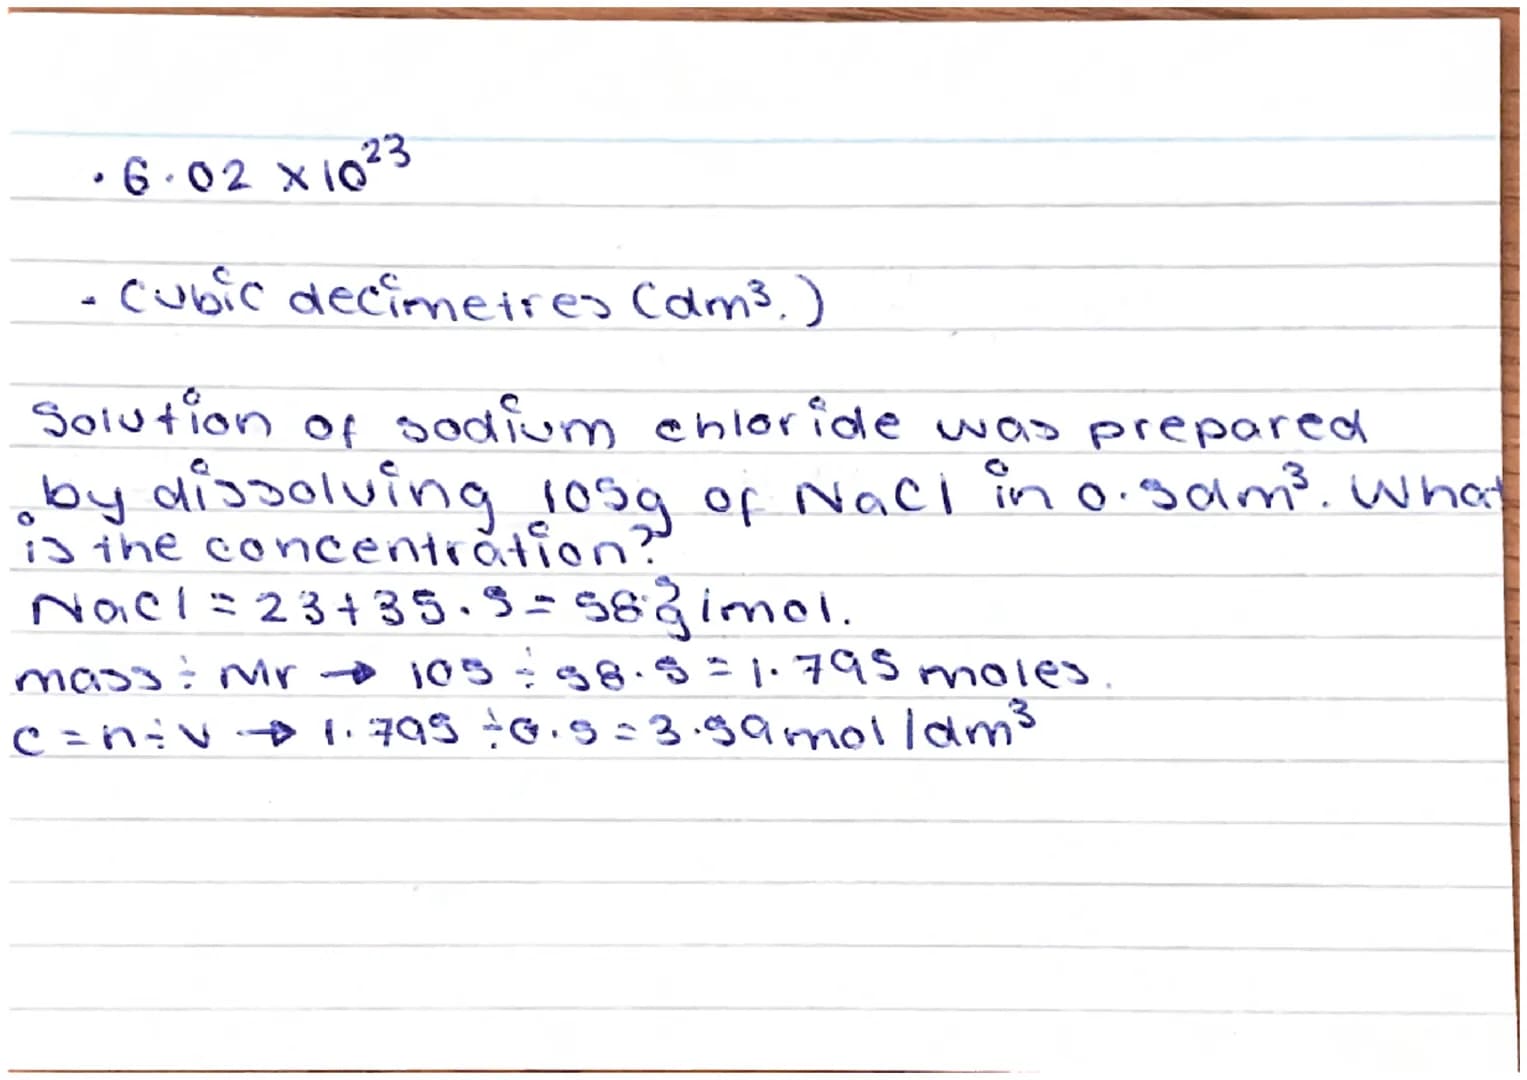 · 6.02 x 10²³
- Cubic decimetres (dm³.)
Solution of sodium chloride was prepared
by dissolving 105g of NaCl in 0.5dm³. What
is the concentration?
NaCl = 23+35.5 = 58.5g/mol.
mass ÷ Mr → 105 ÷ 58.5 = 1.795 moles.
c = n ÷ v → 1.795 ÷ 0.5 = 3.59mol/dm³